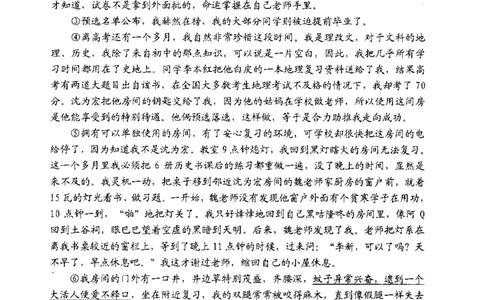 才知道，试卷不是拿到外面批的，命运掌握在自己老师手里。
③预选名单公布，我赫然在榜，我的大部分同学则被迫提前毕业了。
④离高考还有一个多月，我自然非常珍惜这段时间。我是理改文，对于文科的地
理、历史，我除了来自初中的那点知识，可以说是一片空白，因此，我把几乎所有学
习时间都用在了史地上。同学李本红把他白皮的一本地理复习资料送给了我，结果高
考有两道大题目出自该书，在全国大多数考生地理考试不及格的情况下，我却考了 70
分。沈为宏把他房间的钥匙交给了我，因为他的姑妈在学校做老师，所以使用这间房
是他能享受到的特别待遇。他偶预选落选，这样做，等于是合力助推我走向成功。
⑤拥有可以单独使用的房间，有了安心复习的环境，可学校却很快把这房间的电
给停了，因为知道我不是沈为宏。教室 9 点钟熄灯，我回到黑灯瞎火的房间无法复习。
这一个多月里我必须把 6 册历史书课后的练习都重做一遍，没了晚上的时间，显然是
来不及的。我灵机一动，把桌子移到邻近沈为宏房间的魏老师家厨房的窗户前，就着
15 瓦的灯光看书、做习题。一开始，魏老师没有发现他窗户外面有个贫寒学子在用功，
10 点钟一到，“啪”地把灯关了。我只好悻悻地回到自己黑咕隆咚的房间里，像阿 Q
回到土谷祠，眼巴巴望着空虚的黑暗到天明。后来，魏老师发现了我。老师把灯系在
离我书桌较近的窗栏上，等到了晚上 11 点钟的时候，过来问：“李新，可以了吗？天
不早了，早点休息吧。”我这才谢过老师，缩回自己的小屋休息。
⑥我房间的门外有一口井，井边草特别茂盛，齐腰深，蚊子异常兴奋，逮到一个
大活人便爱不释口，坐在附近复习，我的双腿常常被咬得麻木，直到像假腿一样失去